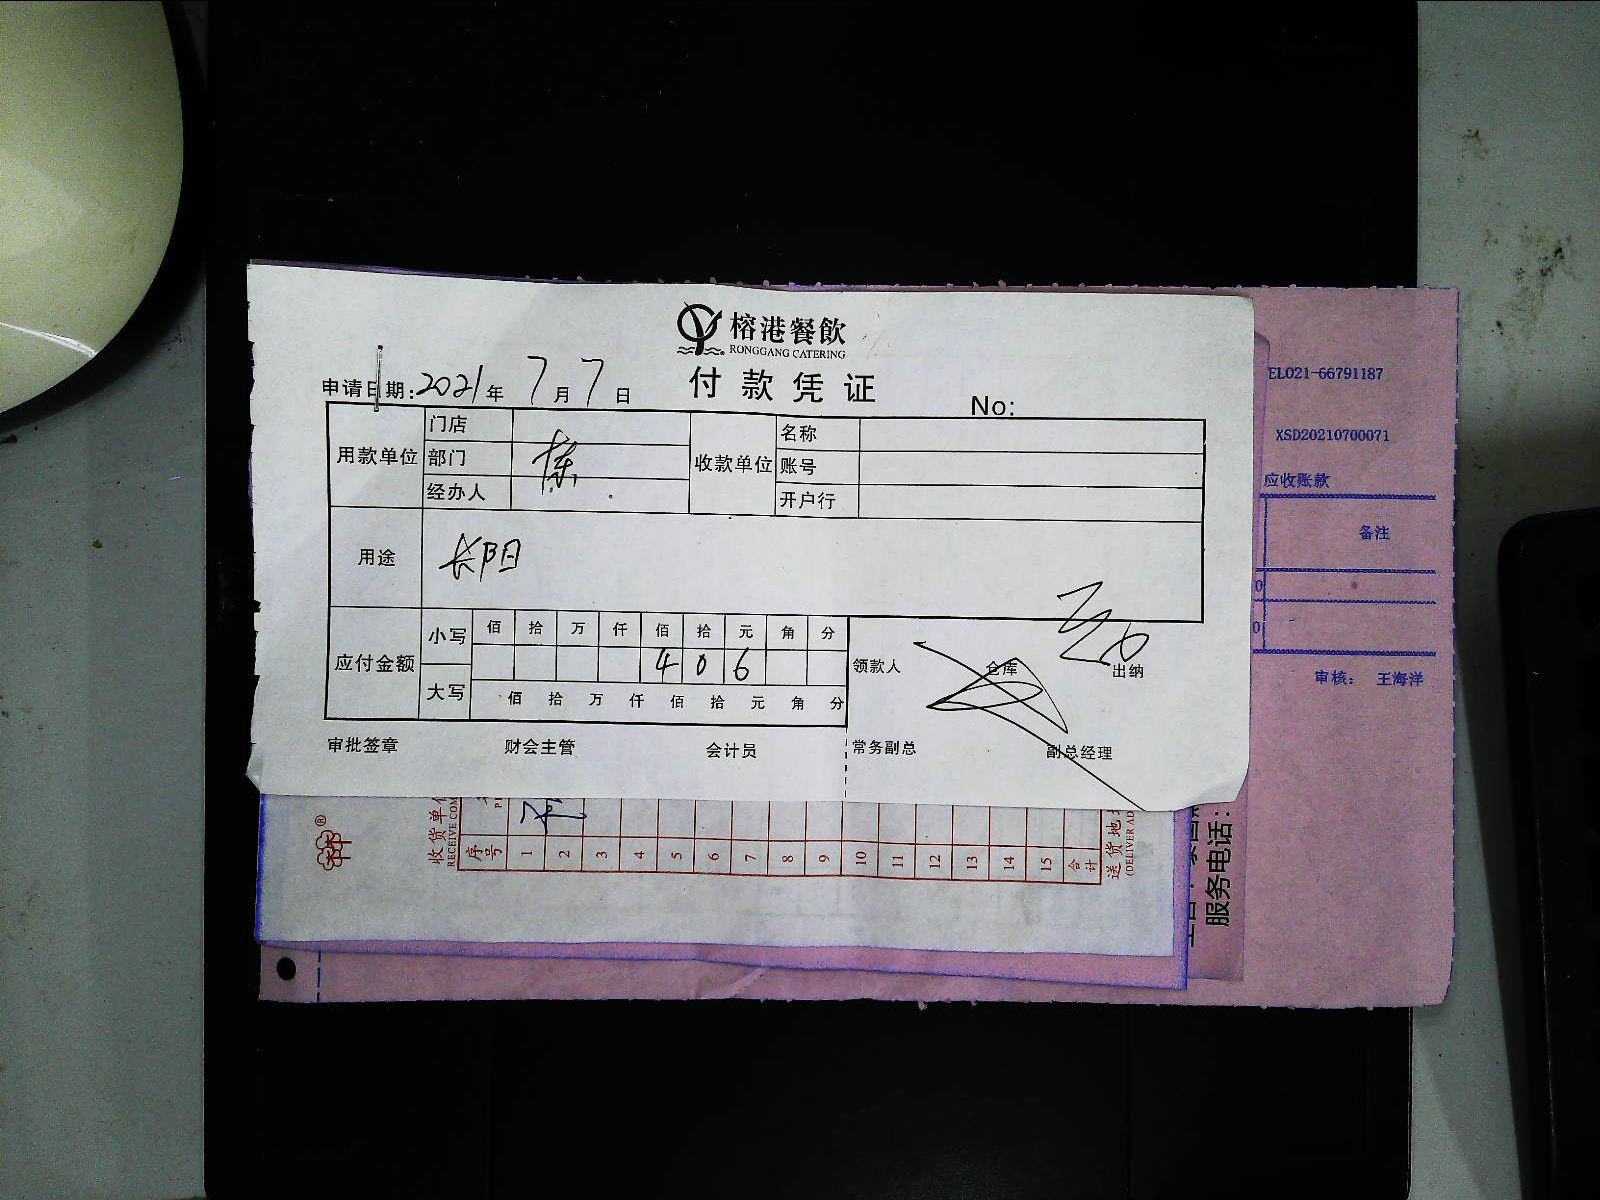 榕港餐飲
RONGGANG CATERING
申请日期:2021年7月7日
付款凭证
No:
用款单位 门店 收款单位 名称
部门 账号
经办人 开户行
用途 长阳
应付金额 小写 佰 拾 万 仟 佰 拾 元 角 分
4 0 6
大写 佰 拾 万 仟 佰 拾 元 角 分
领款人 仓库 出纳
审批签章 财会主管 会计员 常务副总 副总经理
EL021-66791187
XSD20210700071
应收账款
备注
0
0
审核: 王海洋
®
收货单
RECEIVE COM
序号 1 2 3 4 5 6 7 8 9 10 11 12 13 14 15 合计
送货地
(DELIVER AD
服务电话: